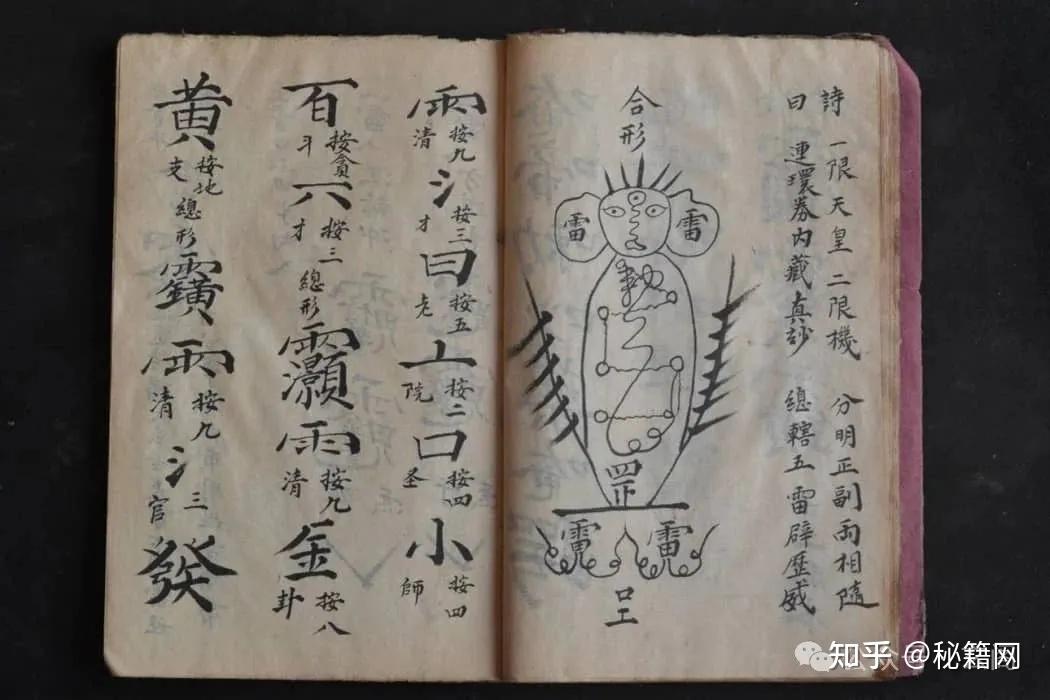 詩 一限天皇二限機 分明正副両相隨
曰 連環券内藏真訬 總轄五雷辟歴威
合形
雷 雷
罡
口工
雨 按九清 氵 按三才 曰 按五老 亠 按二院 口 按四圣 小 按四師
百 按貪斗 八 按三才 總形 雨 按九清 金 按八卦
黃 按地支 總形 雨 按九清 氵 三官 發
知乎 @秘籍网